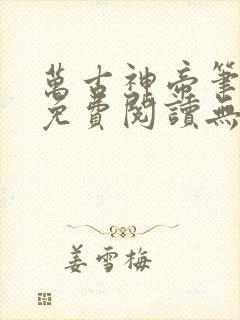 萬古神帝筆
免費閱讀無
姜雪梅